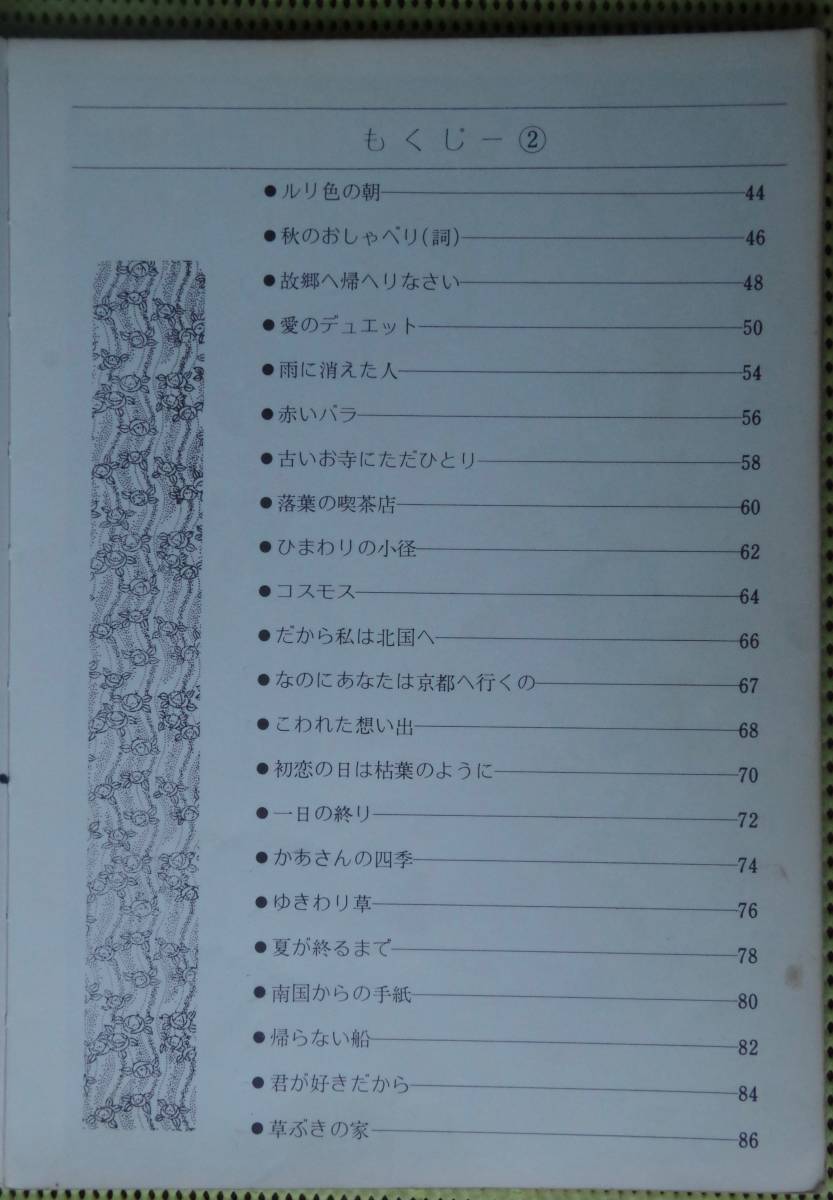 もくじー②
●ルリ色の朝――44
●秋のおしゃべり(詞)――46
●故郷へ帰へりなさい――48
●愛のデュエット――50
●雨に消えた人――54
●赤いバラ――56
●古いお寺にただひとり――58
●落葉の喫茶店――60
●ひまわりの小径――62
●コスモス――64
●だから私は北国へ――66
●なのにあなたは京都へ行くの――67
●こわれた想い出――68
●初恋の日は枯葉のように――70
●一日の終り――72
●かあさんの四季――74
●ゆきわり草――76
●夏が終るまで――78
●南国からの手紙――80
●帰らない船――82
●君が好きだから――84
●草ぶきの家――86